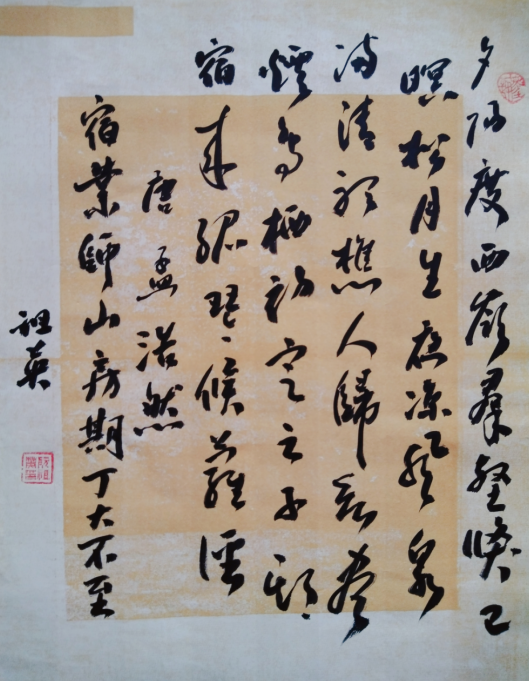 夕陽度西嶺羣壑倏已
暝松月生夜凉風泉
满清聽樵人歸欲盡
煙鳥栖初定之子期
宿来孤琴候蘿徑
唐孟浩然
宿業師山房期丁大不至
祖英